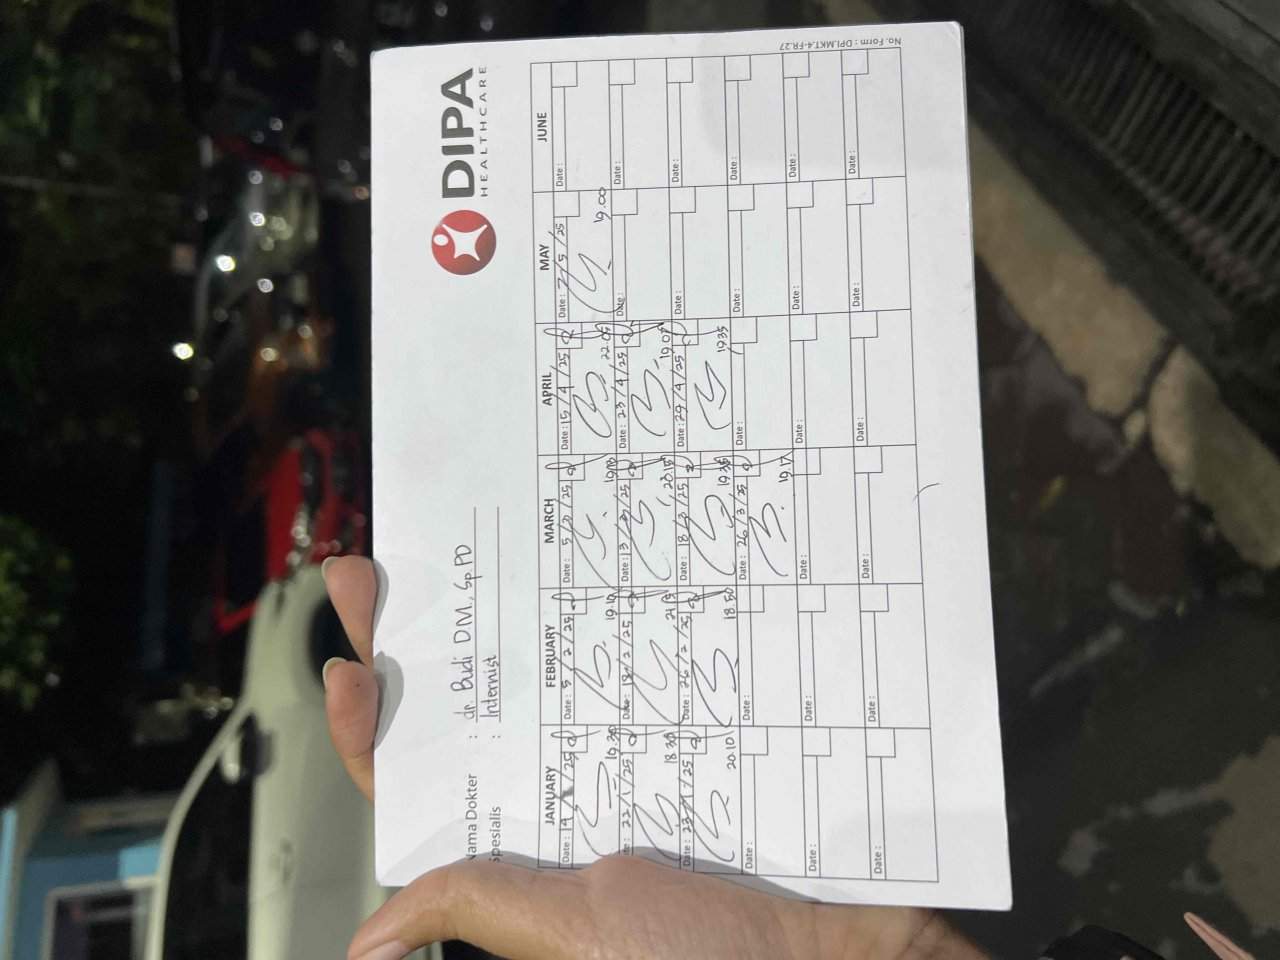 DIPA
HEALTHCARE
Nama Dokter : dr. Budi D.M., Sp.PD
Spesialis : Internist
JANUARY FEBRUARY MARCH APRIL MAY JUNE
Date: 14/1/25 Date: 5/2/25 Date: 5/3/25 Date: 15/4/25 Date: 7/5/25 Date:
19.30 19.10 19.13 22.05 19.00
Date: 22/1/25 Date: 18/2/25 Date: 13/3/25 Date: 23/4/25 Date: Date:
18.30 20.15 19.07
Date: 23/1/25 Date: 26/2/25 Date: 18/3/25 Date: 29/4/25 Date: Date:
20.10 18.50 19.35 19.35
Date: Date: Date: 26/3/25 Date: Date: Date:
19.17
Date: Date: Date: Date: Date: Date:
Date: Date: Date: Date: Date: Date:
No. Form : DPI.MKT.4-FR.27